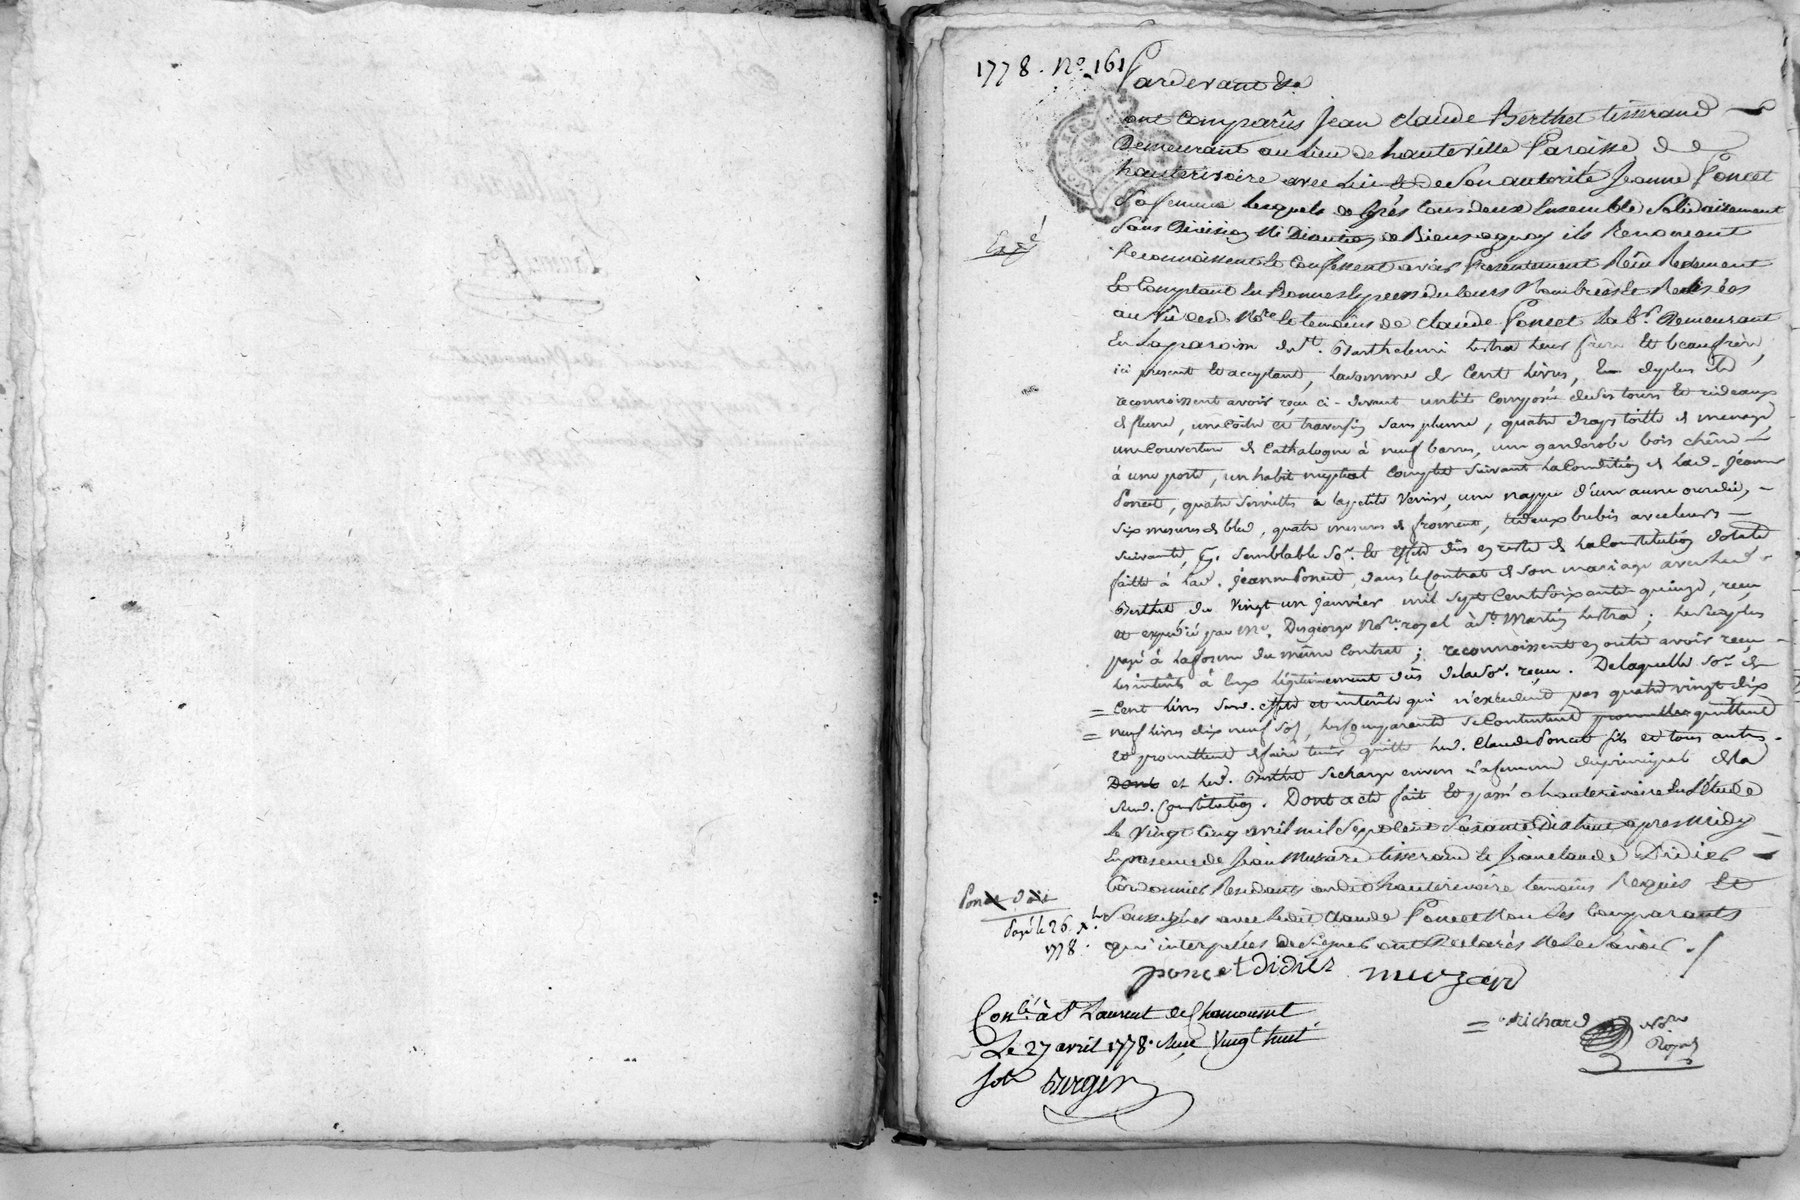 1778. No. 161
Pardevant &a
ont Comparûs Jean Claude Berthet tisserand
Demeurant au lieu de hauteville Paroisse de
hauterivoire avec lui et de son autorité Jeanne Poncet
Sa femme lesquels de Grés tous deux Ensemble Solidairement
Sans Division Ni Discution de Biens a quoy ils Renoncent
Reconnoissent et Confessent avoir Presentement Reçu Reelement
Et Comptant En Bonnes Especes du Cours Nombrées et Realisées
au Vû des d. Nore. et temoins de Claude Poncet lab.r Demeurant
En la paroisse de St. Barthelemi Lestra leur frere et beaufrère,
ici present et acceptant, la somme de Cent livres, En de plus ils
reconnoissent avoir reçu ci-devant un lit Composé de tours et rideaux
de un coitre et traversin sans plume, quatre draps toille de menage,
une Couverture de Cathalogne à neuf barres, un garderobe bois chêne
à une porte, un habit nuptial Complet suivant la Condition de lad. Jeanne
Poncet, quatre serviettes à la petite Venise, une nappe d'une aune ourdie,
six mesures de bled, quatre mesures de froment, deux brebis avec leurs
suivants, semblable So.e et Effets dûs en reste de la Constitution dotale
faitte à lad. Jeanne Poncet, dans le Contrat de son mariage avec led.
Berthet du Vingt un janvier mil sept Cent soixante quinze, reçu
et expedié par Me. Desgeorge Nore. royal à St. Martin Lestra; le surplus
payé à la forme du même Contrat; reconnoissent en outre avoir reçu
les intérêts à Eux légitimement dûs de lad. So.e reçue. De laquelle So.e de
= Cent livres susd. effets et intérêts qui n'excedent pas quatre vingt dix
= neuf livres dix neuf sols, les Comparants se Contentent promettent quittent
et promettent de faire tenir quitte led. Claude Poncet fils et tous autres.
Dont et led. Berthet se charge envers sa femme du principal de la
susd. Constitution. Dont acte fait et passé a hauterivoire En l'Etude
le Vingt Cinq avril mil Sept Cent Soixante Dix huit apres Midy
En presence de Jean Muzard tisserand et Jean Claude Didier
Cordonnier Residants audit hauterivoire temoins Requis Et
Soussignés avec ledit Claude Poncet Non les Comparants
qui interpellés de Signer ont Declarés Ne le Savoir. /
Exp.é
Poncet doit
Payé le 26 Xbre
1778.
poncet didier muzard
Con.lé à St Laurent de Chamousset
Le 27 avril 1778. Reçu Vingt huit
sols Burgin
= Richard Nore
Royal